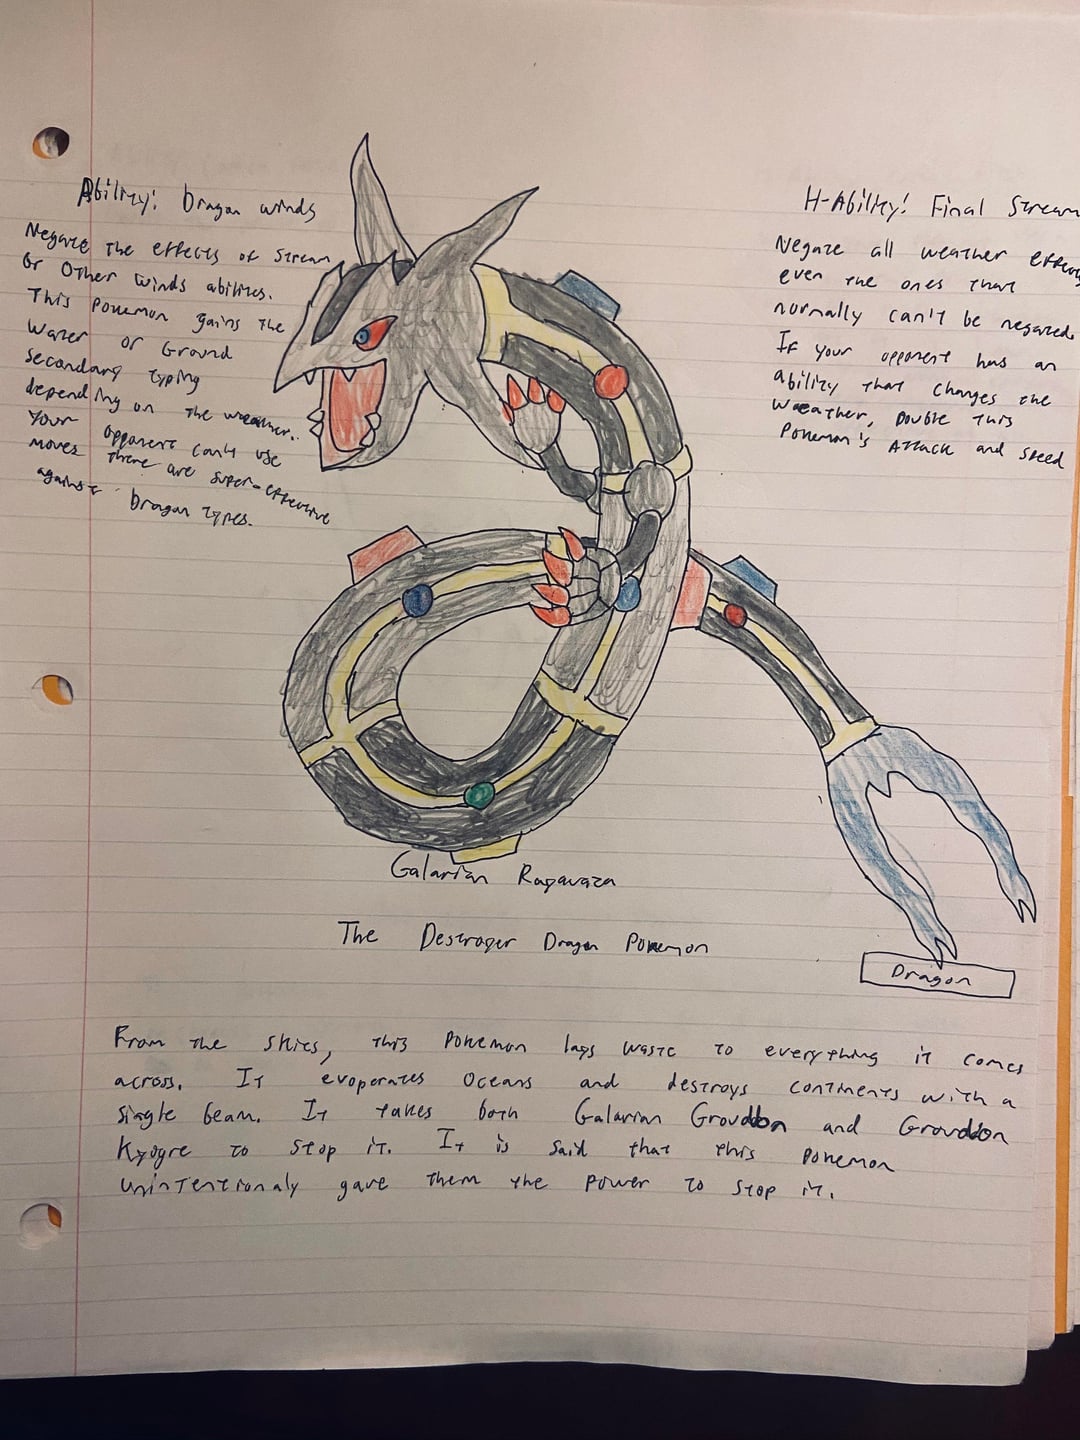 Ability: Dragon winds
Negate the effects of Stream
or Other Winds abilities.
This Pokemon gains the
Water or Ground
Secondary typing
depending on the weather.
Your opponent can't use
moves there are super-effective
against Dragon types.
H-Ability: Final Stream
Negate all weather effects
even the ones that
normally can't be negated.
If your opponent has an
ability that changes the
weather, Double this
Pokemon's Attack and Speed
Galarian Rayquaza
The Destroyer Dragon Pokemon
Dragon
From the skies, this Pokemon lays waste to everything it comes
across. It evoporates Oceans and destroys continents with a
single beam. It takes both Galarian Grouddon and Grouddon
Kyogre to stop it. It is said that this Pokemon
unintentionaly gave them the power to stop it.